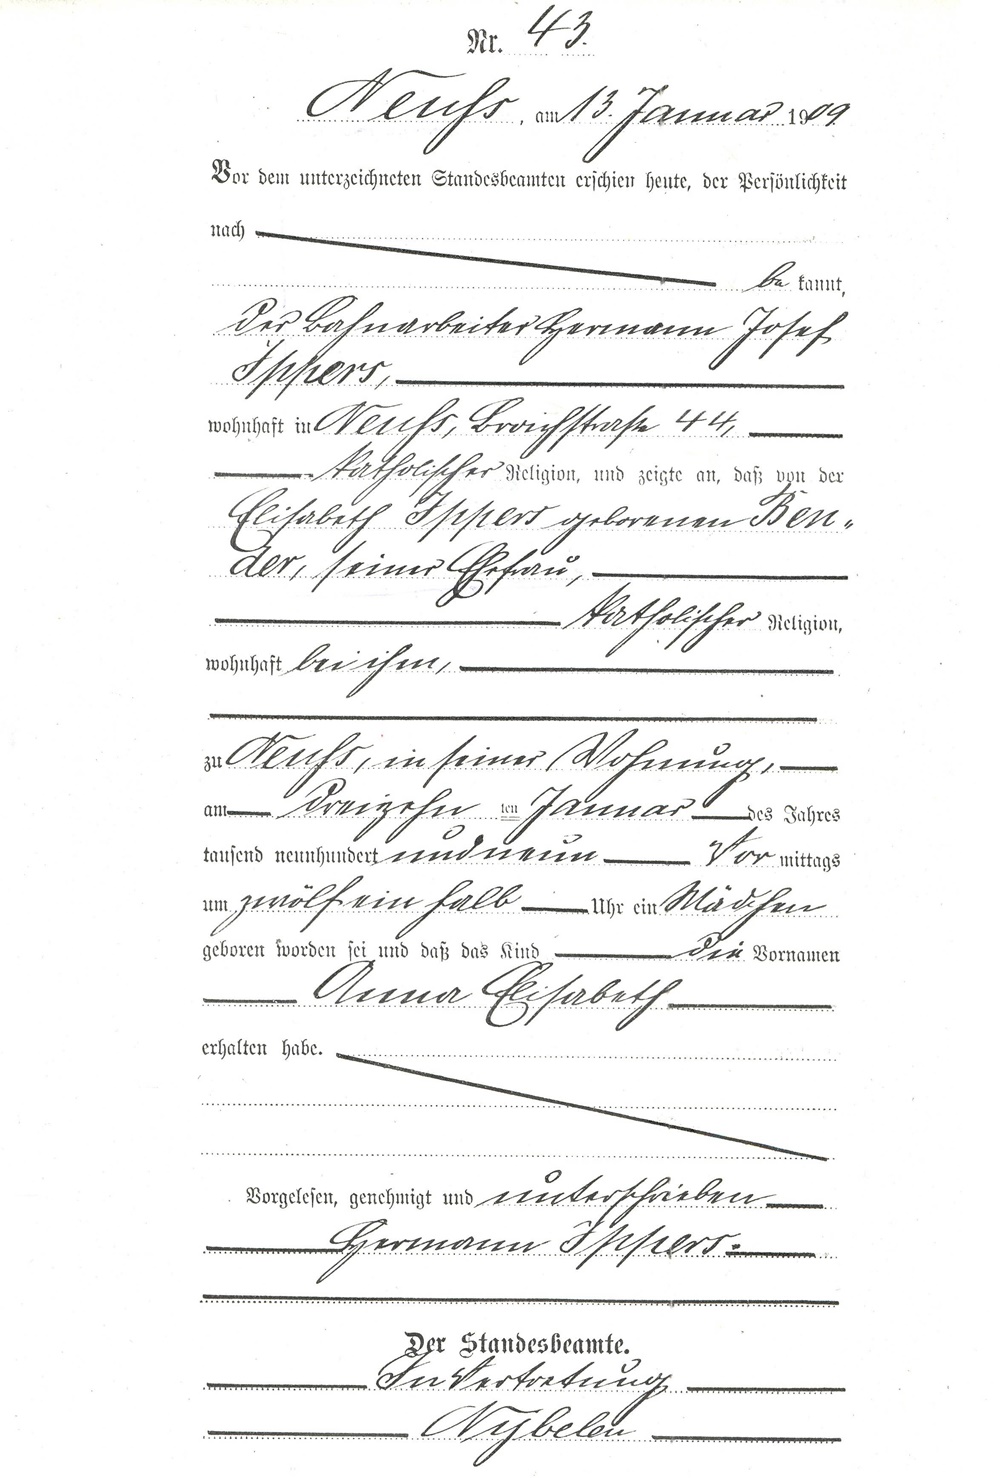 Nr. 43.
Neuß, am 13. Januar 1909
Vor dem unterzeichneten Standesbeamten erschien heute, der Persönlichkeit
nach
be kannt,
der Bahnarbeiter Hermann Josef
Ippers,
wohnhaft in Neuß, Broichstraße 44,
katholischer Religion, und zeigte an, daß von der
Elisabeth Ippers geborenen Ben-
der, seiner Ehefrau,
katholischer Religion,
wohnhaft bei ihm,
zu Neuß, in seiner Wohnung,
am dreizehn ten Januar des Jahres
tausend neunhundert und neun Vor mittags
um zwölf ein halb Uhr ein Mädchen
geboren worden sei und daß das Kind die Vornamen
Anna Elisabeth
erhalten habe.
Vorgelesen, genehmigt und unterschrieben
Hermann Ippers.
Der Standesbeamte.
In Vertretung
Nybelen